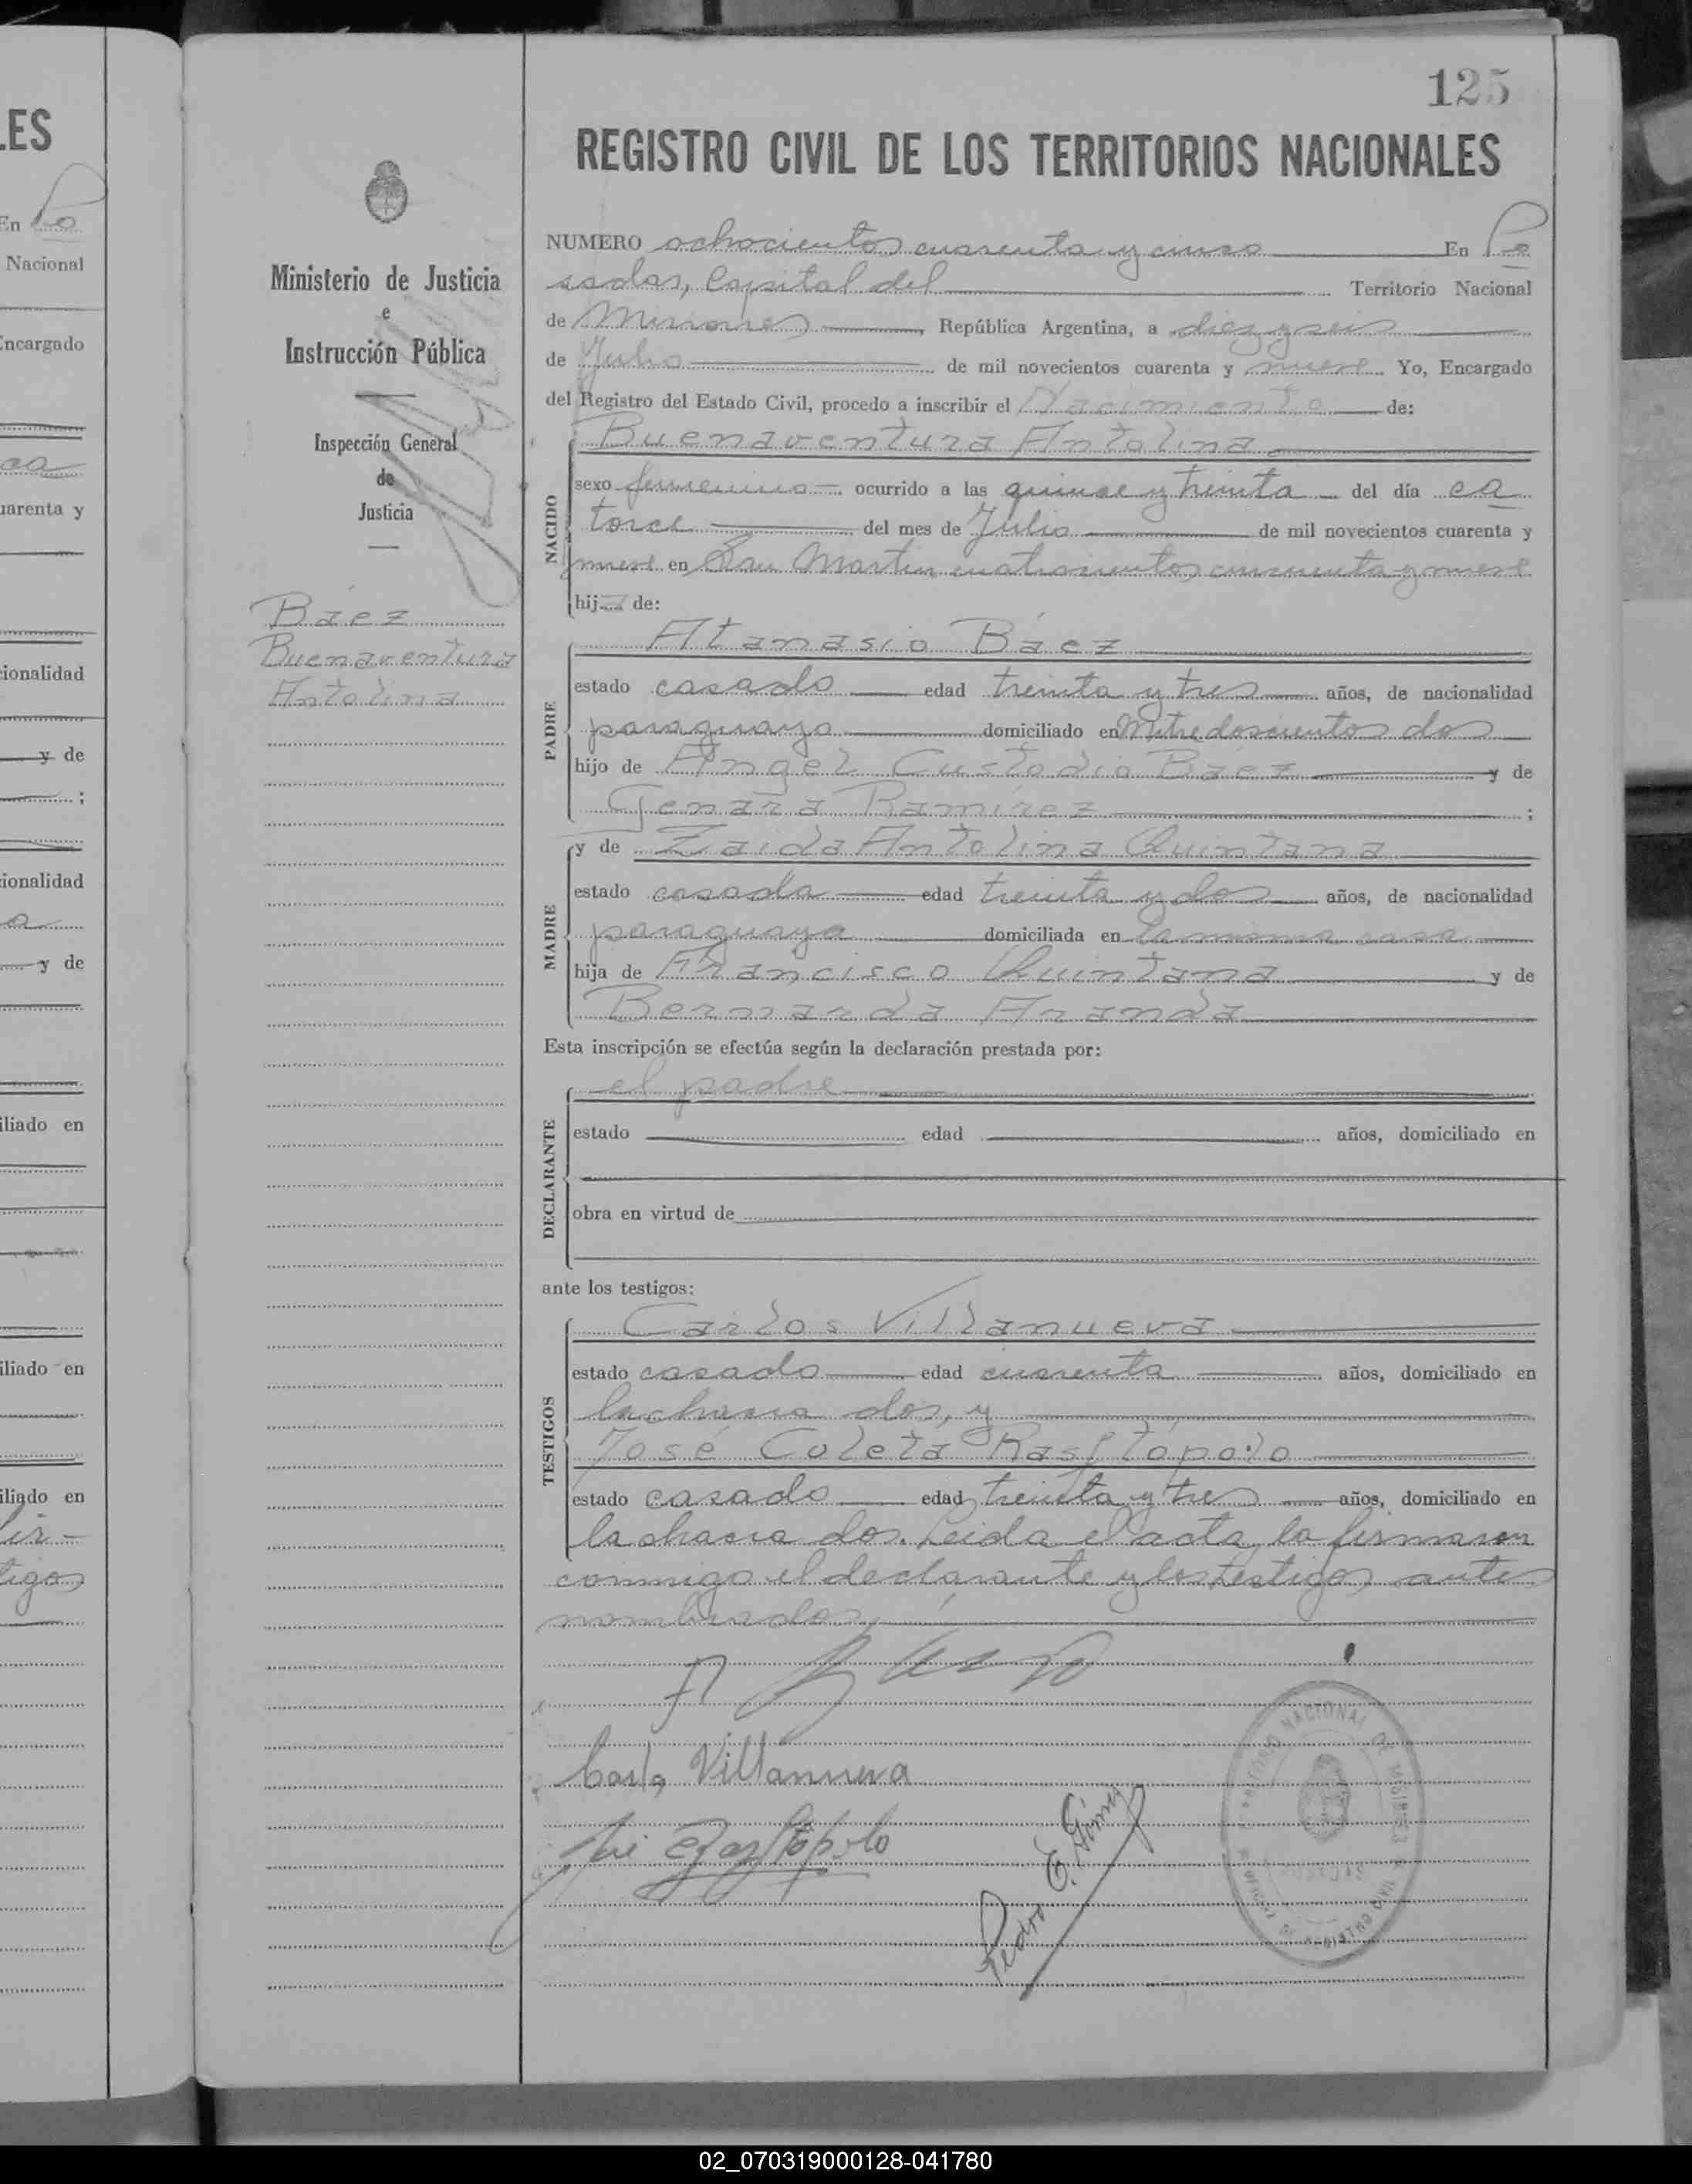 LES
En Po
Nacional
Encargado
ca
uarenta y
cionalidad
y de
;
cionalidad
a
y de
iliado en
iliado en
iliado en
tigos
125
REGISTRO CIVIL DE LOS TERRITORIOS NACIONALES
Ministerio de Justicia
e
Instrucción Pública
Inspección General
de
Justicia
Báez
Buenaventura
Antolina
NUMERO ochocientos cuarenta y cinco En Po
sadas, Capital del Territorio Nacional
de Misiones, República Argentina, a diez y seis
de Julio de mil novecientos cuarenta y nueve Yo, Encargado
del Registro del Estado Civil, procedo a inscribir el Nacimiento de:
NACIDO
Buenaventura Antolina
sexo femenino ocurrido a las quince y treinta del día ca
torce del mes de Julio de mil novecientos cuarenta y
nueve en San Martin cuatrocientos cincuenta y nueve
hija de:
PADRE
Atanasio Báez
estado casado edad treinta y tres años, de nacionalidad
paraguaya domiciliado en Mitre doscientos dos
hijo de Angel Custodio Báez y de
Genara Ramírez ;
MADRE
y de Zaida Antolina Quintana
estado casada edad treinta y dos años, de nacionalidad
paraguaya domiciliada en la misma casa
hija de Francisco Quintana y de
Bernarda Aranda
Esta inscripción se efectúa según la declaración prestada por:
DECLARANTE
el padre
estado edad años, domiciliado en
obra en virtud de
ante los testigos:
TESTIGOS
Carlos Villanueva
estado casado edad cuarenta años, domiciliado en
la chacra dos, y
José Coleta Rasftópolo
estado casado edad treinta y tres años, domiciliado en
la chacra dos. Leida el acta, la firmaron
conmigo el declarante y los testigos antes
nombrados,
Carlos Villanueva
Pedro E. Gómez
TERRITORIO NACIONAL DE MISIONES
02_070319000128-041780